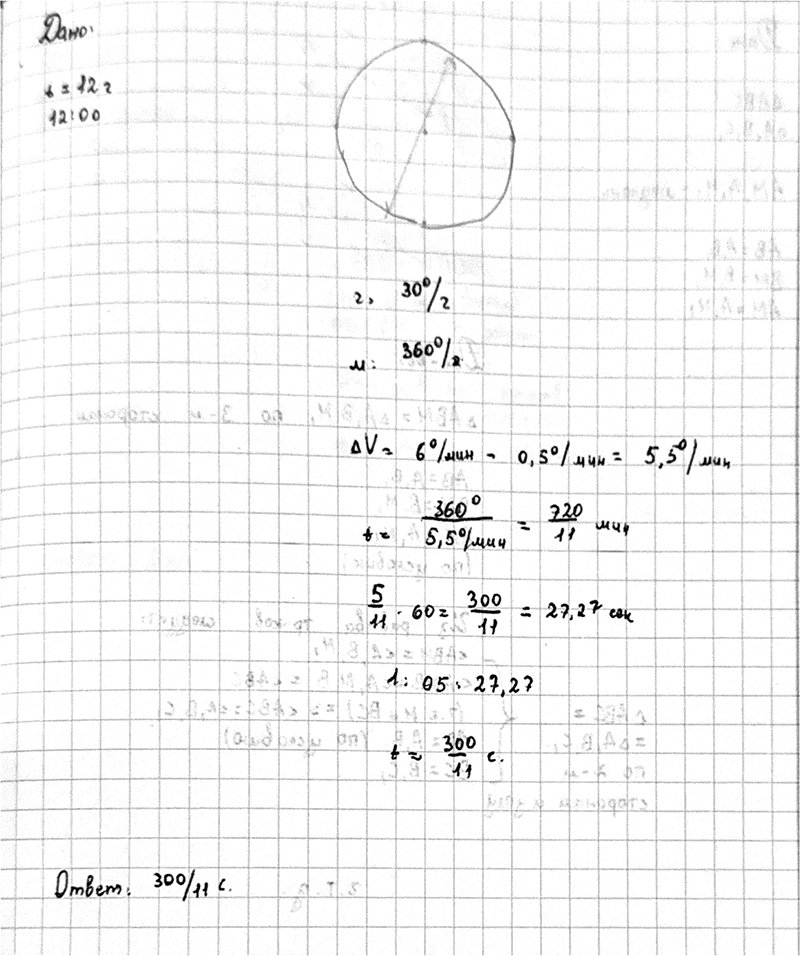 Дано:
t = 12 г
12:00
г: 30°/г
м: 360°/г
ΔV = 6°/мин - 0,5°/мин = 5,5°/мин
t = 360° / 5,5°/мин = 720/11 мин
5/11 · 60 = 300/11 = 27,27 сек
1 : 05 : 27,27
t = 300/11 с.
Ответ: 300/11 с.